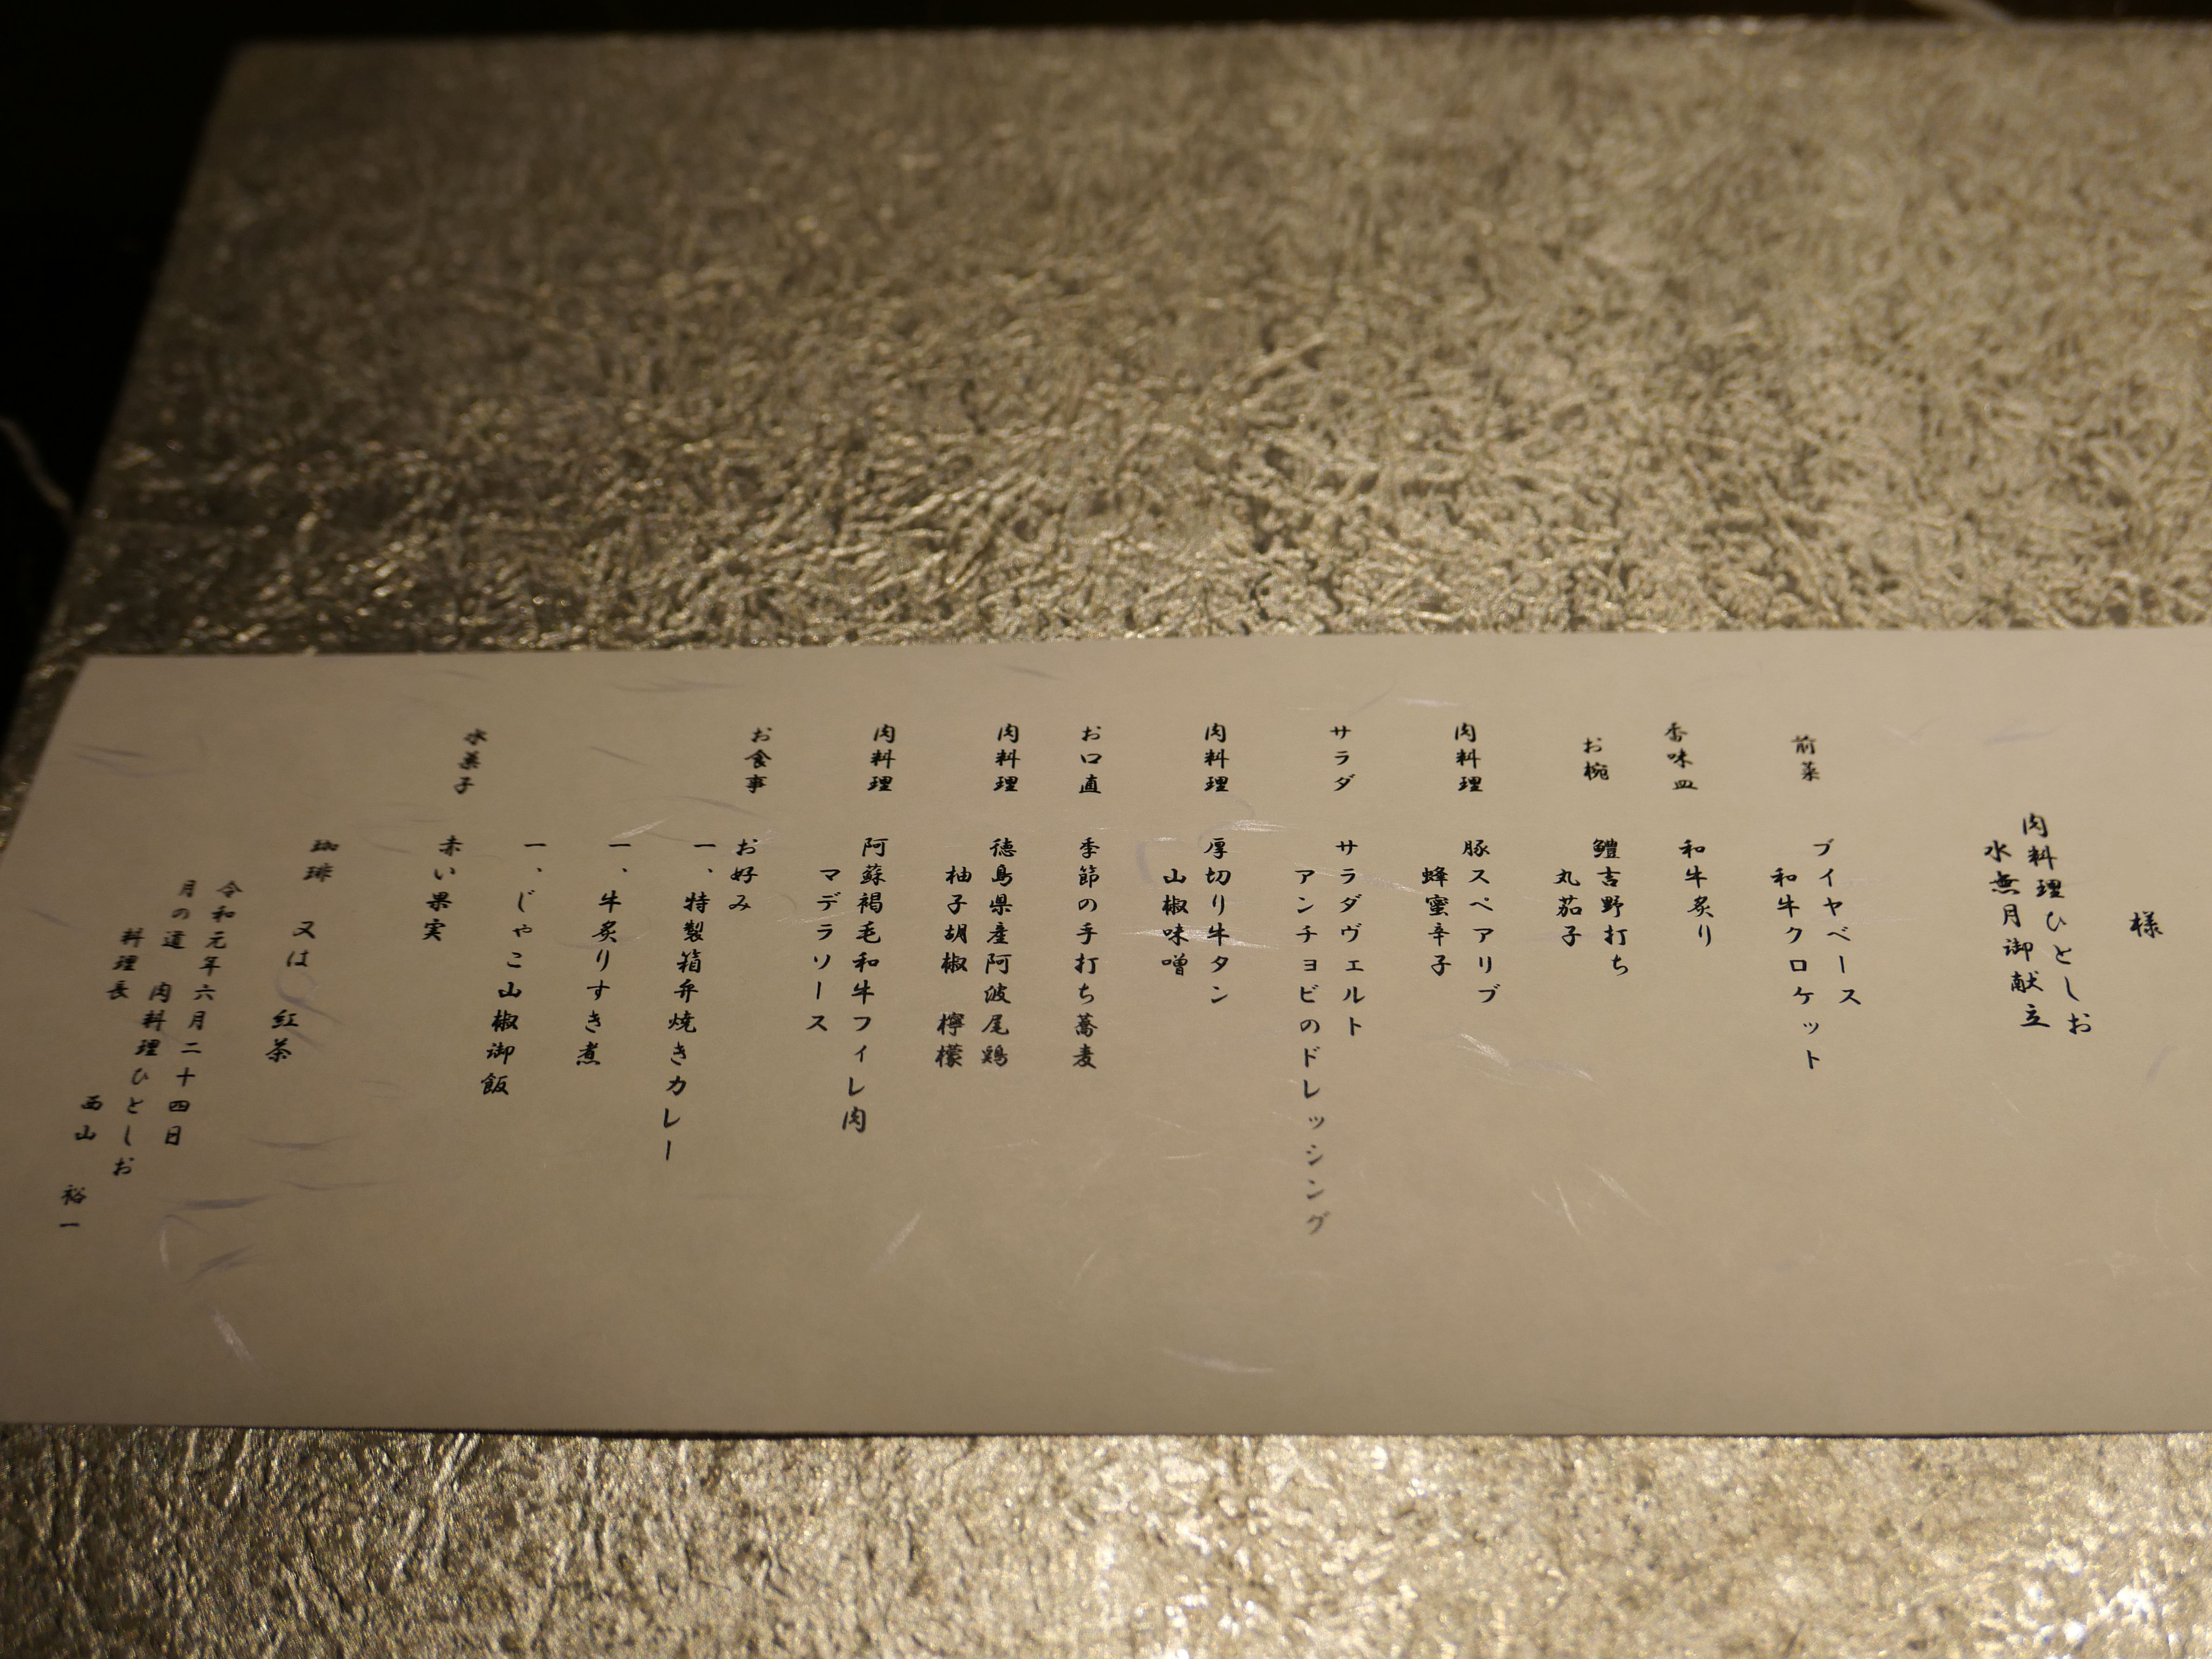 様
肉料理ひとしお
水無月御献立
前菜　ブイヤベース
和牛クロケット
香味皿　和牛炙り
お椀　鱧吉野打ち
丸茄子
肉料理　豚スペアリブ
蜂蜜辛子
サラダ　サラダヴェルト
アンチョビのドレッシング
肉料理　厚切り牛タン
山椒味噌
お口直　季節の手打ち蕎麦
肉料理　徳島県産阿波尾鶏
柚子胡椒　檸檬
肉料理　阿蘇褐毛和牛フィレ肉
マデラソース
お食事　お好み
一、特製箱弁焼きカレー
一、牛炙りすき煮
一、じゃこ山椒御飯
水菓子　赤い果実
珈琲　又は　紅茶
令和元年六月二十四日
月の道　肉料理ひとしお
料理長　西山　裕一